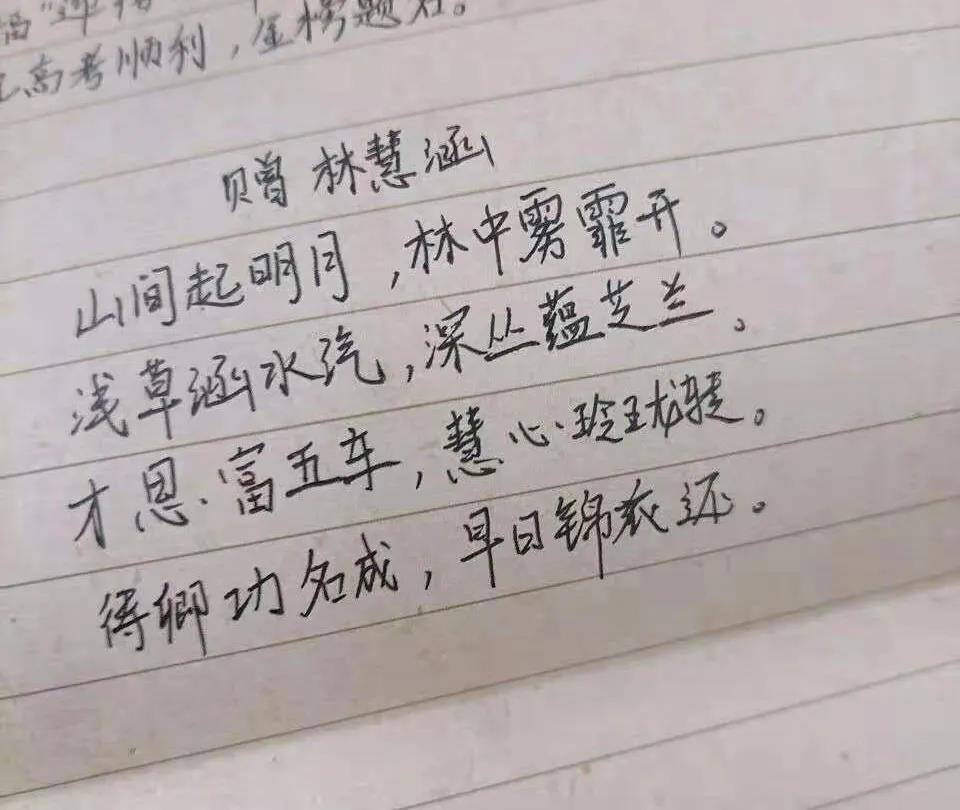 高考顺利，金榜题名。
赠 林慧涵
山间起明月，林中雾霏开。
浅草涵水汽，深丛蕴芝兰。
才思富五车，慧心玲珑骰。
得卿功名成，早日锦衣还。